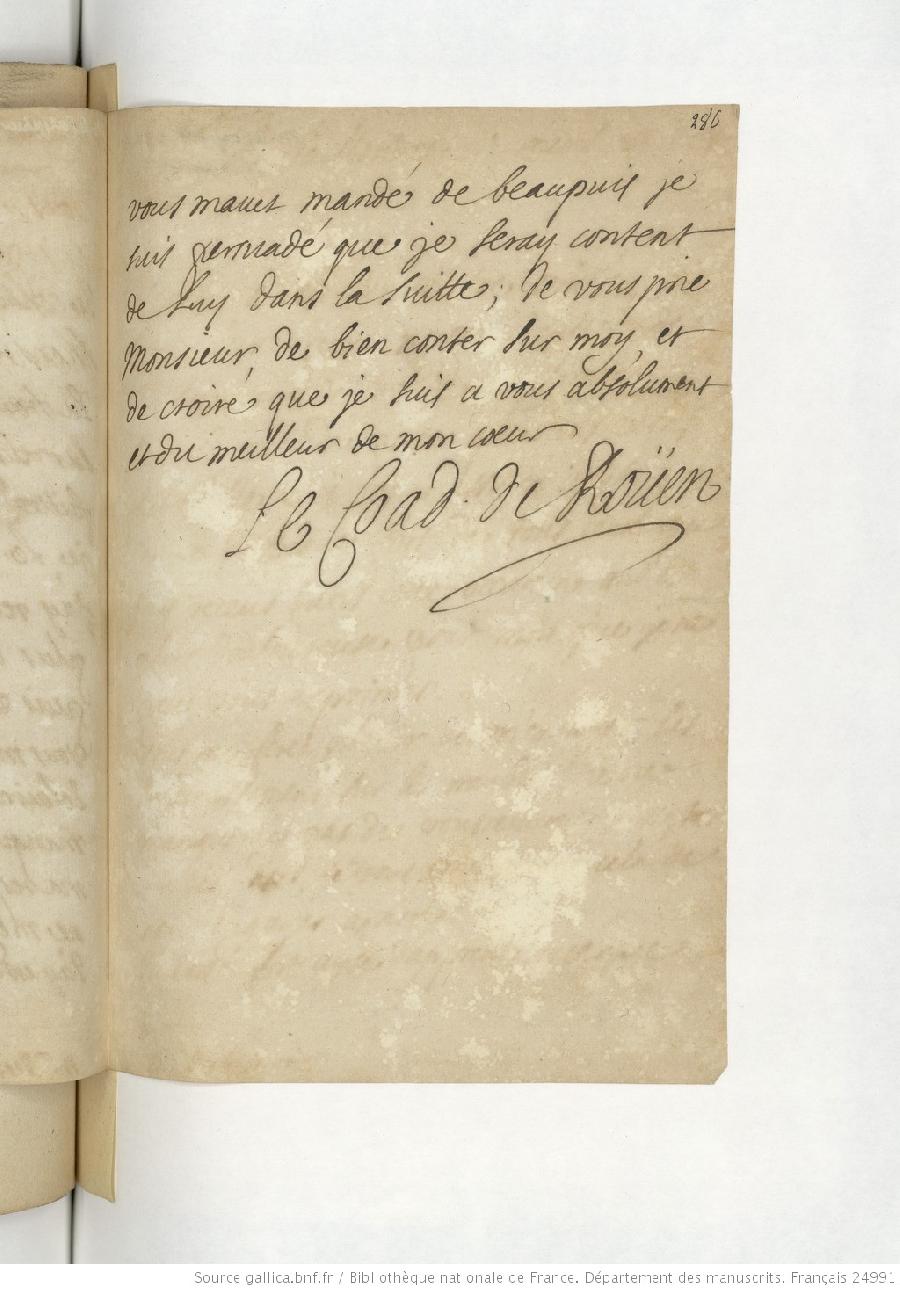 286
vous mavet mandé de beaupuis je
suis persuadé que je seray content
de luy dans la suitte; Je vous prie
Monsieur, de bien conter sur moy, et
de croire que je suis a vous absolument
et du meilleur de mon coeur
Le Coad. de Roüen
Source gallica.bnf.fr / Bibliothèque nationale de France. Département des manuscrits. Français 24991